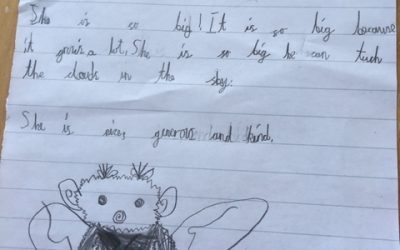 She is so big! It is so big because
it grows a lot. She is so big he can tuch
the clouds in the sky.
She is nice, generous and kind.